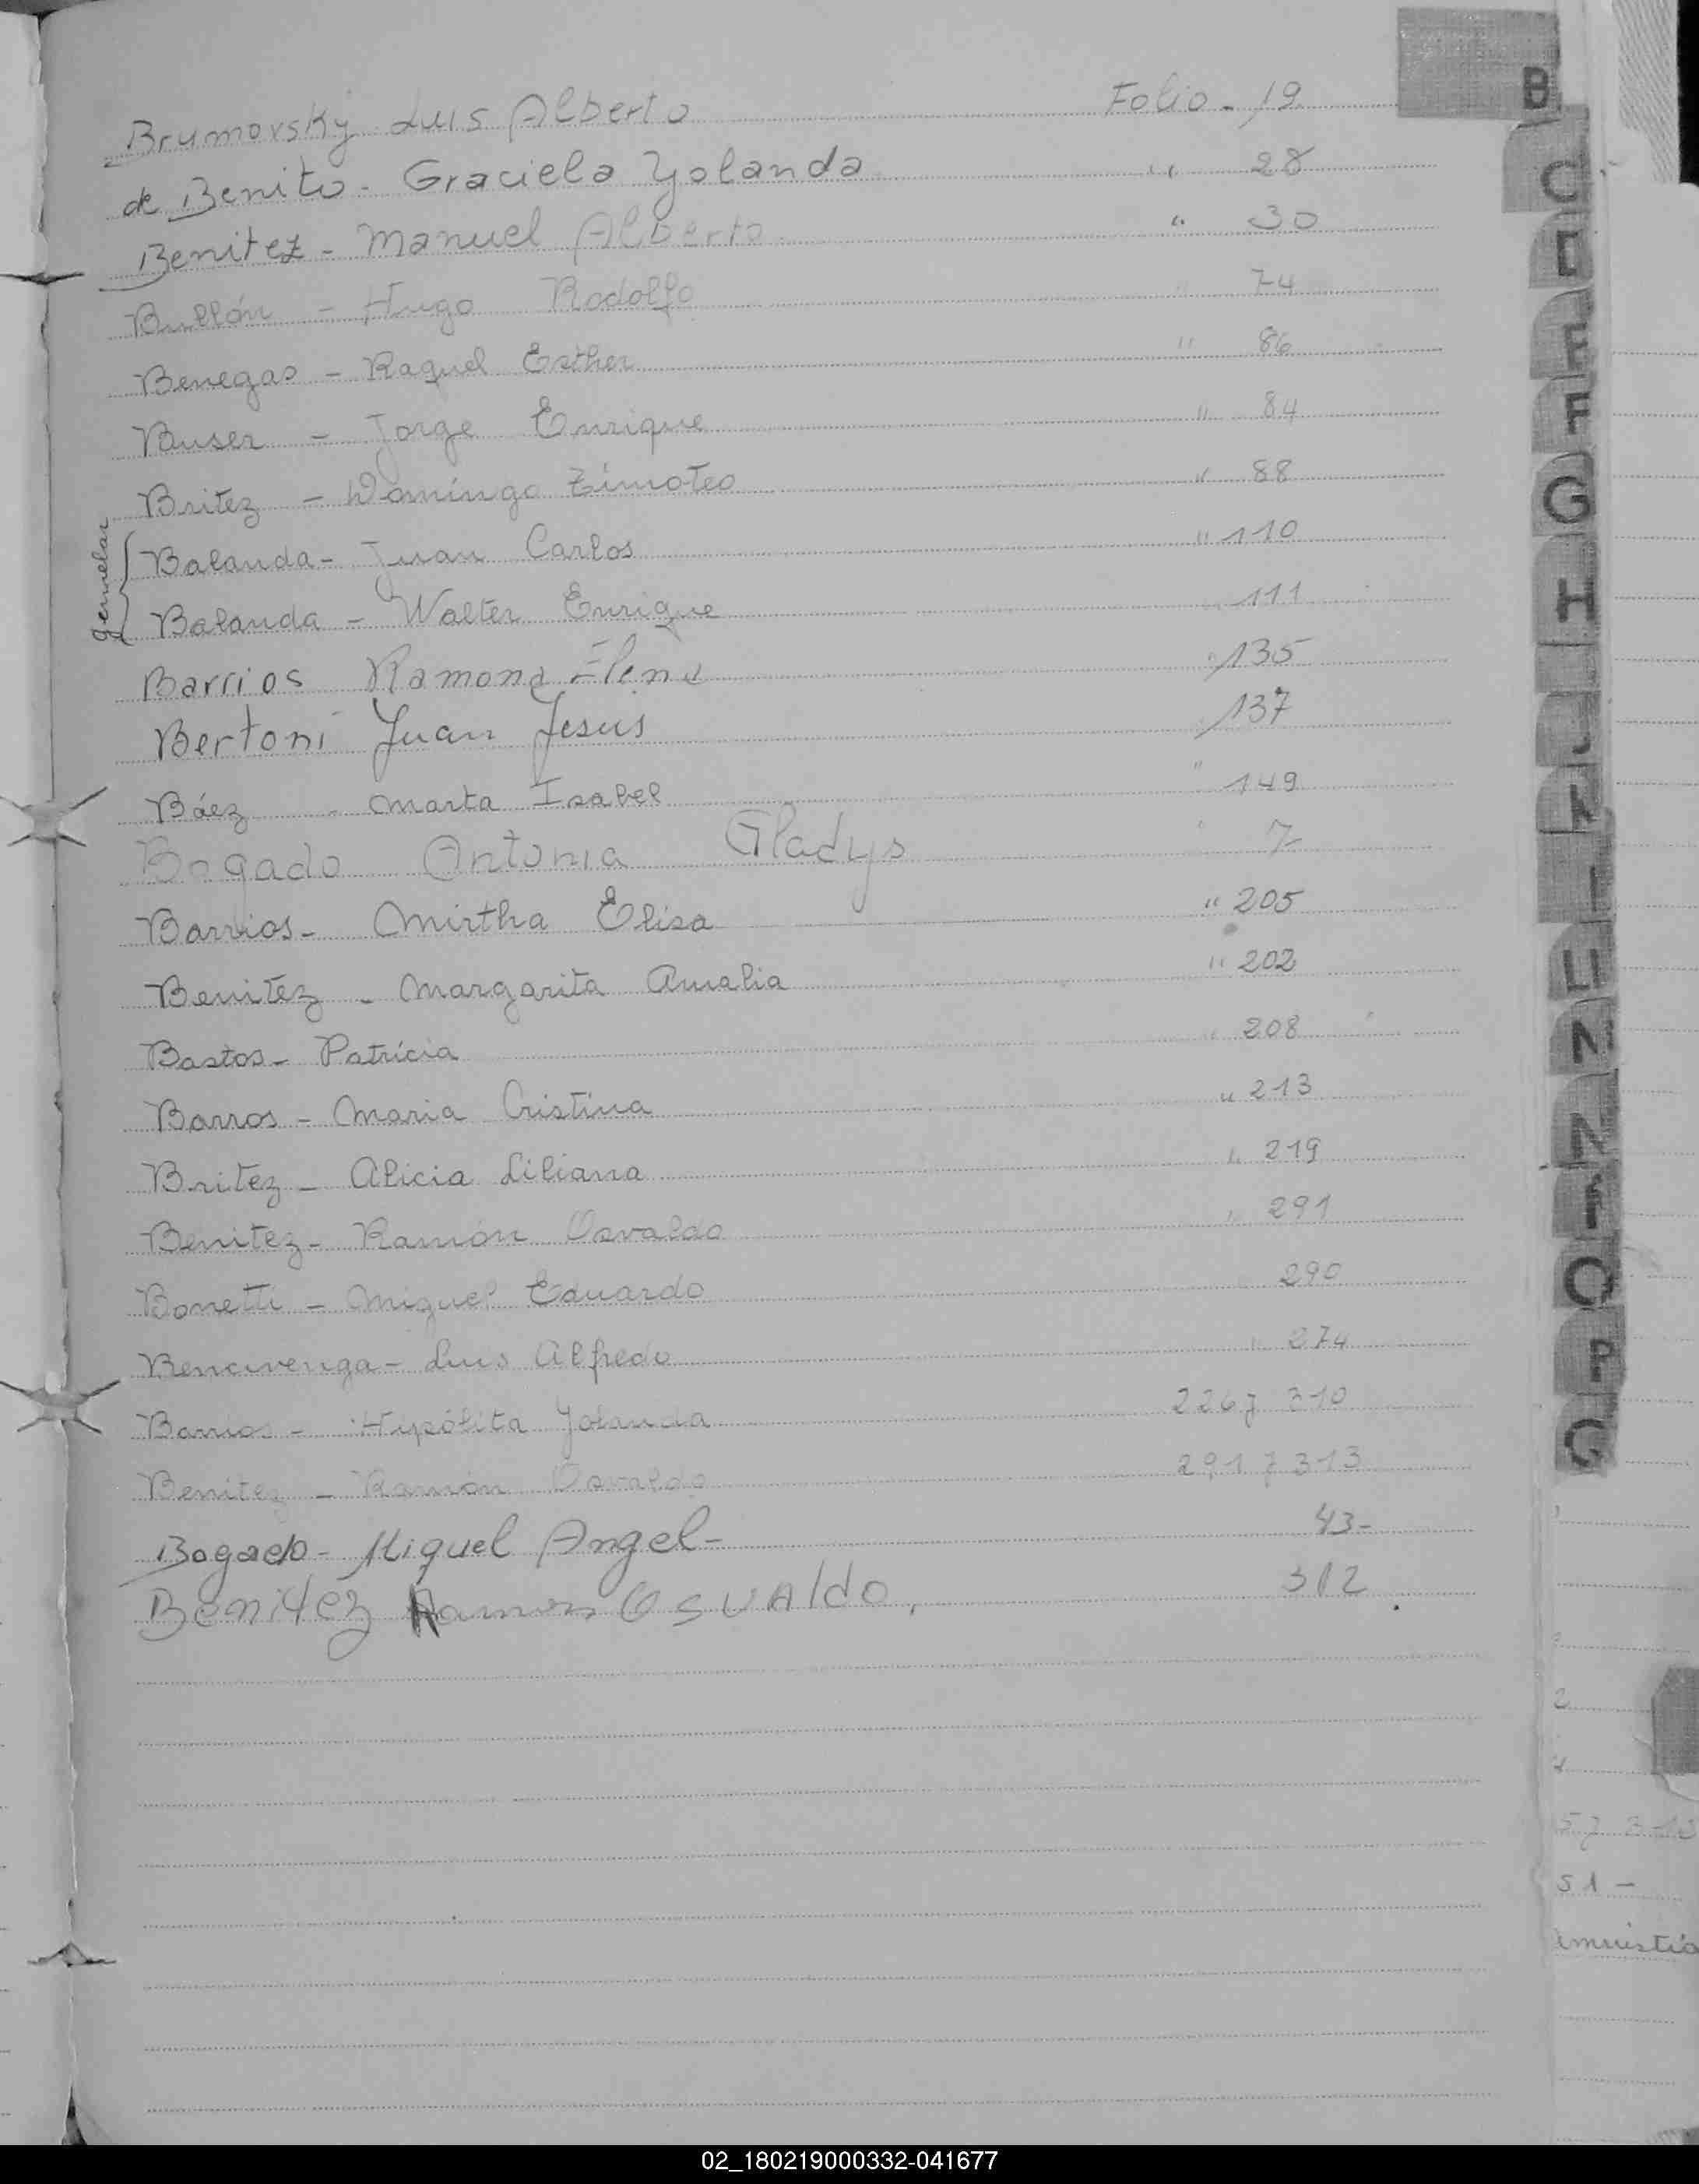 Brumovsky Luis Alberto Folio - 19
de Benito - Graciela Yolanda " 28
Benitez - Manuel Alberto " 30
Bullón - Hugo Rodolfo " 74
Benegas - Raquel Esther " 86
Buser - Jorge Enrique " 84
Britez - Domingo Timoteo " 88
gemelar
Balanda - Juan Carlos " 110
Balanda - Walter Enrique 111
Barrios Ramona Elena " 135
Bertoni Juan Jesus 137
Báez - Marta Isabel " 149
Bogado Antonia Gladys " 7
Barrios - Mirtha Elisa " 205
Benitez - Margarita Amalia " 202
Bastos - Patricia " 208
Barros - Maria Cristina " 213
Britez - Alicia Liliana " 219
Benitez - Ramón Osvaldo " 291
Bonetti - Miguel Eduardo 290
Bencivenga - Luis Alfredo " 274
Barrios - Hipólita Yolanda 226 y 310
Benitez - Ramón Osvaldo 291 y 313
Bogado - Miguel Angel - 43-
Benitez Ramon Osvaldo. 312
B
C
E
F
G
H
I
J
K
L
N
N
O
P
Q
2
51 -
02_180219000332-041677